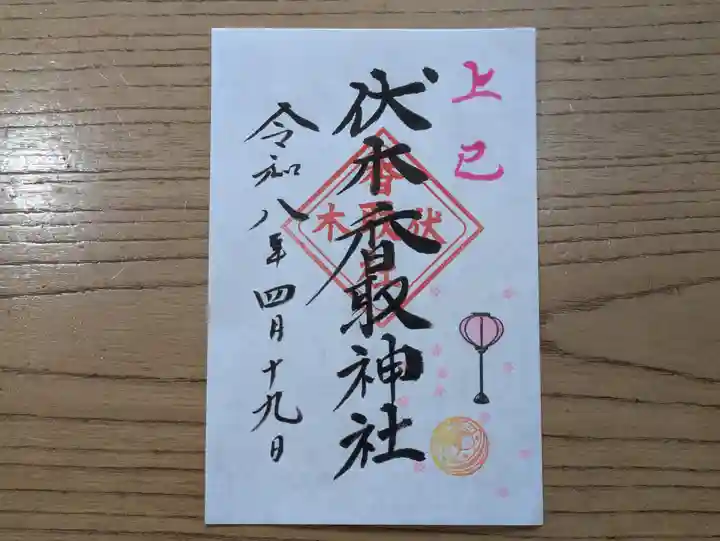 上巳
伏木香取神社
香取
伏木
令和八年四月十九日